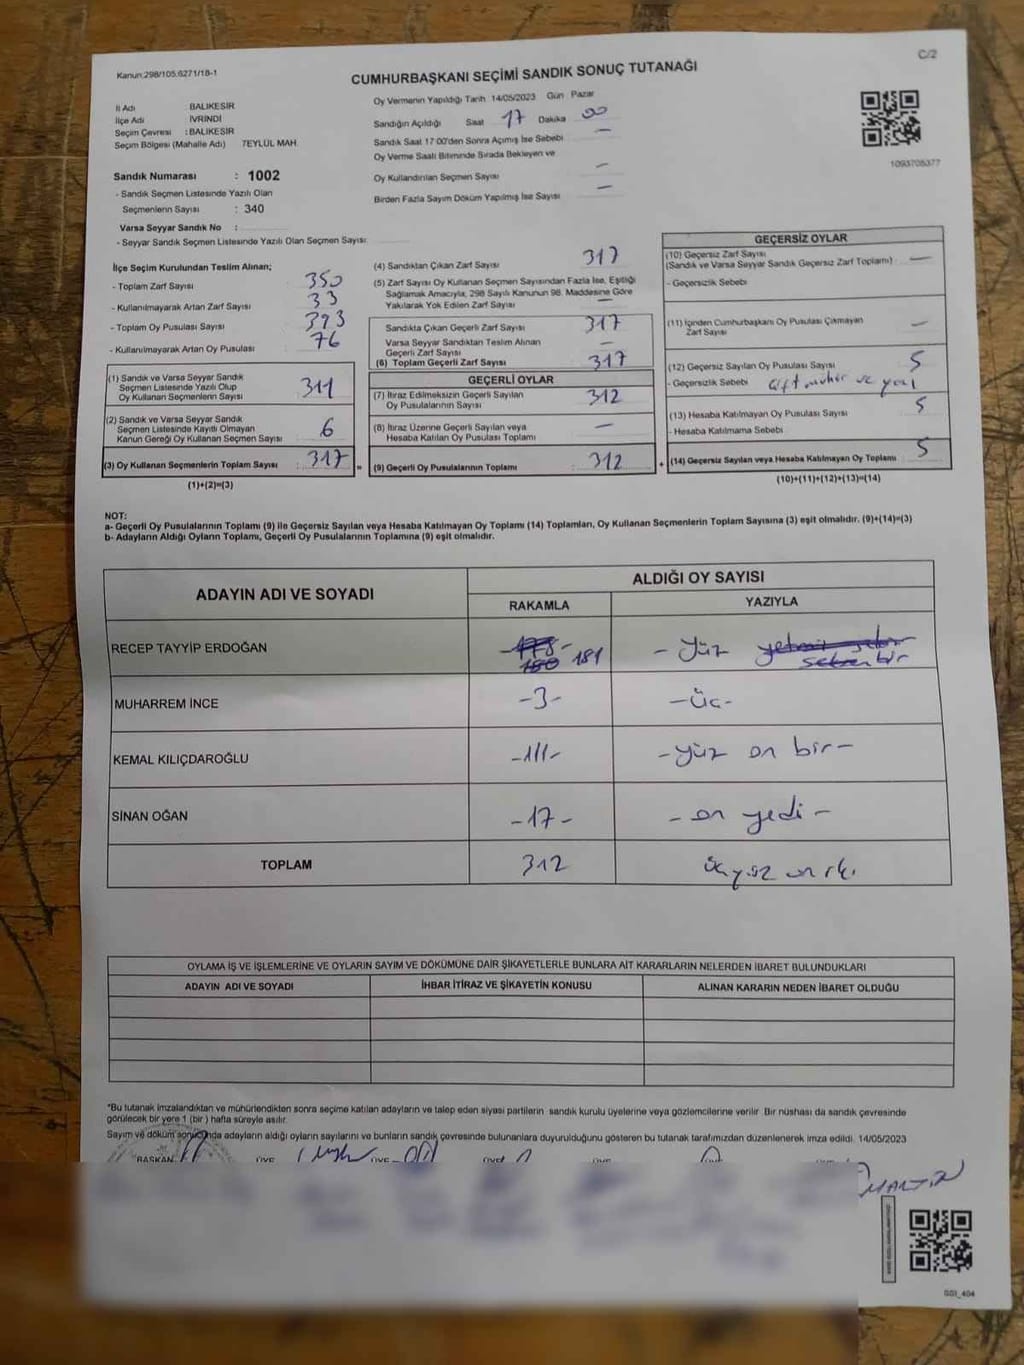 C/2
Kanun:298/105.6271/18-1
CUMHURBAŞKANI SEÇİMİ SANDIK SONUÇ TUTANAĞI
İl Adı : BALIKESİR
İlçe Adı : İVRİNDİ
Seçim Çevresi : BALIKESİR
Seçim Bölgesi (Mahalle Adı) 7EYLÜL MAH.
Oy Vermenin Yapıldığı Tarih 14/05/2023 Gün Pazar
Sandığın Açıldığı Saat 17 Dakika 00
Sandık Saat 17:00'den Sonra Açımış İse Sebebi —
Oy Verme Saati Bitiminde Sırada Bekleyen ve
Oy Kullandırılan Seçmen Sayısı —
Birden Fazla Sayım Döküm Yapılmış İse Sayısı —
1093708377
Sandık Numarası : 1002
- Sandık Seçmen Listesinde Yazılı Olan
Seçmenlerin Sayısı : 340
Varsa Seyyar Sandık No :
- Seyyar Sandık Seçmen Listesinde Yazılı Olan Seçmen Sayısı:
İlçe Seçim Kurulundan Teslim Alınan;
- Toplam Zarf Sayısı : 350
- Kullanılmayarak Artan Zarf Sayısı : 33
- Toplam Oy Pusulası Sayısı : 393
- Kullanılmayarak Artan Oy Pusulası : 76
(1) Sandık ve Varsa Seyyar Sandık
Seçmen Listesinde Yazılı Olup
Oy Kullanan Seçmenlerin Sayısı : 311
(2) Sandık ve Varsa Seyyar Sandık
Seçmen Listesinde Kayıtlı Olmayan
Kanun Gereği Oy Kullanan Seçmen Sayısı : 6
(3) Oy Kullanan Seçmenlerin Toplam Sayısı : 317 =
(1)+(2)=(3)
(4) Sandıktan Çıkan Zarf Sayısı 317
(5) Zarf Sayısı Oy Kullanan Seçmen Sayısından Fazla İse, Eşitliği
Sağlamak Amacıyla, 298 Sayılı Kanunun 98. Maddesine Göre
Yakılarak Yok Edilen Zarf Sayısı —
Sandıkta Çıkan Geçerli Zarf Sayısı 317
Varsa Seyyar Sandıktan Teslim Alınan
Geçerli Zarf Sayısı —
(6) Toplam Geçerli Zarf Sayısı 317
GEÇERLİ OYLAR
(7) İtiraz Edilmeksizin Geçerli Sayılan
Oy Pusulalarının Sayısı : 312
(8) İtiraz Üzerine Geçerli Sayılan veya
Hesaba Katılan Oy Pusulası Toplamı : —
(9) Geçerli Oy Pusulalarının Toplamı : 312 +
GEÇERSİZ OYLAR
(10) Geçersiz Zarf Sayısı
(Sandık ve Varsa Seyyar Sandık Geçersiz Zarf Toplamı) : —
- Geçersizlik Sebebi
(11) İçinden Cumhurbaşkanı Oy Pusulası Çıkmayan
Zarf Sayısı —
(12) Geçersiz Sayılan Oy Pusulası Sayısı 5
- Geçersizlik Sebebi çift mühür ve
(13) Hesaba Katılmayan Oy Pusulası Sayısı 5
- Hesaba Katılmama Sebebi
(14) Geçersiz Sayılan veya Hesaba Katılmayan Oy Toplamı 5
(10)+(11)+(12)+(13)=(14)
NOT:
a- Geçerli Oy Pusulalarının Toplamı (9) ile Geçersiz Sayılan veya Hesaba Katılmayan Oy Toplamı (14) Toplamları, Oy Kullanan Seçmenlerin Toplam Sayısına (3) eşit olmalıdır. (9)+(14)=(3)
b- Adayların Aldığı Oyların Toplamı, Geçerli Oy Pusulalarının Toplamına (9) eşit olmalıdır.
ADAYIN ADI VE SOYADI
ALDIĞI OY SAYISI
RAKAMLA YAZIYLA
RECEP TAYYİP ERDOĞAN -178- 180 181 - Yüz yetmiş sekiz- seksenbir
MUHARREM İNCE -3- -Üç-
KEMAL KILIÇDAROĞLU -111- -yüz on bir-
SİNAN OĞAN -17- -on yedi-
TOPLAM 312 üçyüz on iki
OYLAMA İŞ VE İŞLEMLERİNE VE OYLARIN SAYIM VE DÖKÜMÜNE DAİR ŞİKAYETLERLE BUNLARA AİT KARARLARIN NELERDEN İBARET BULUNDUKLARI
ADAYIN ADI VE SOYADI İHBAR İTİRAZ VE ŞİKAYETİN KONUSU ALINAN KARARIN NEDEN İBARET OLDUĞU
*Bu tutanak imzalandıktan ve mühürlendikten sonra seçime katılan adayların ve talep eden siyasi partilerin sandık kurulu üyelerine veya gözlemcilerine verilir. Bir nüshası da sandık çevresinde
görülecek bir yere 1 (bir) hafta süreyle asılır.
Sayım ve döküm sonucunda adayların aldığı oyların sayılarını ve bunların sandık çevresinde bulunanlara duyurulduğunu gösteren bu tutanak tarafımızdan düzenlenerek imza edildi. 14/05/2023
BAŞKAN